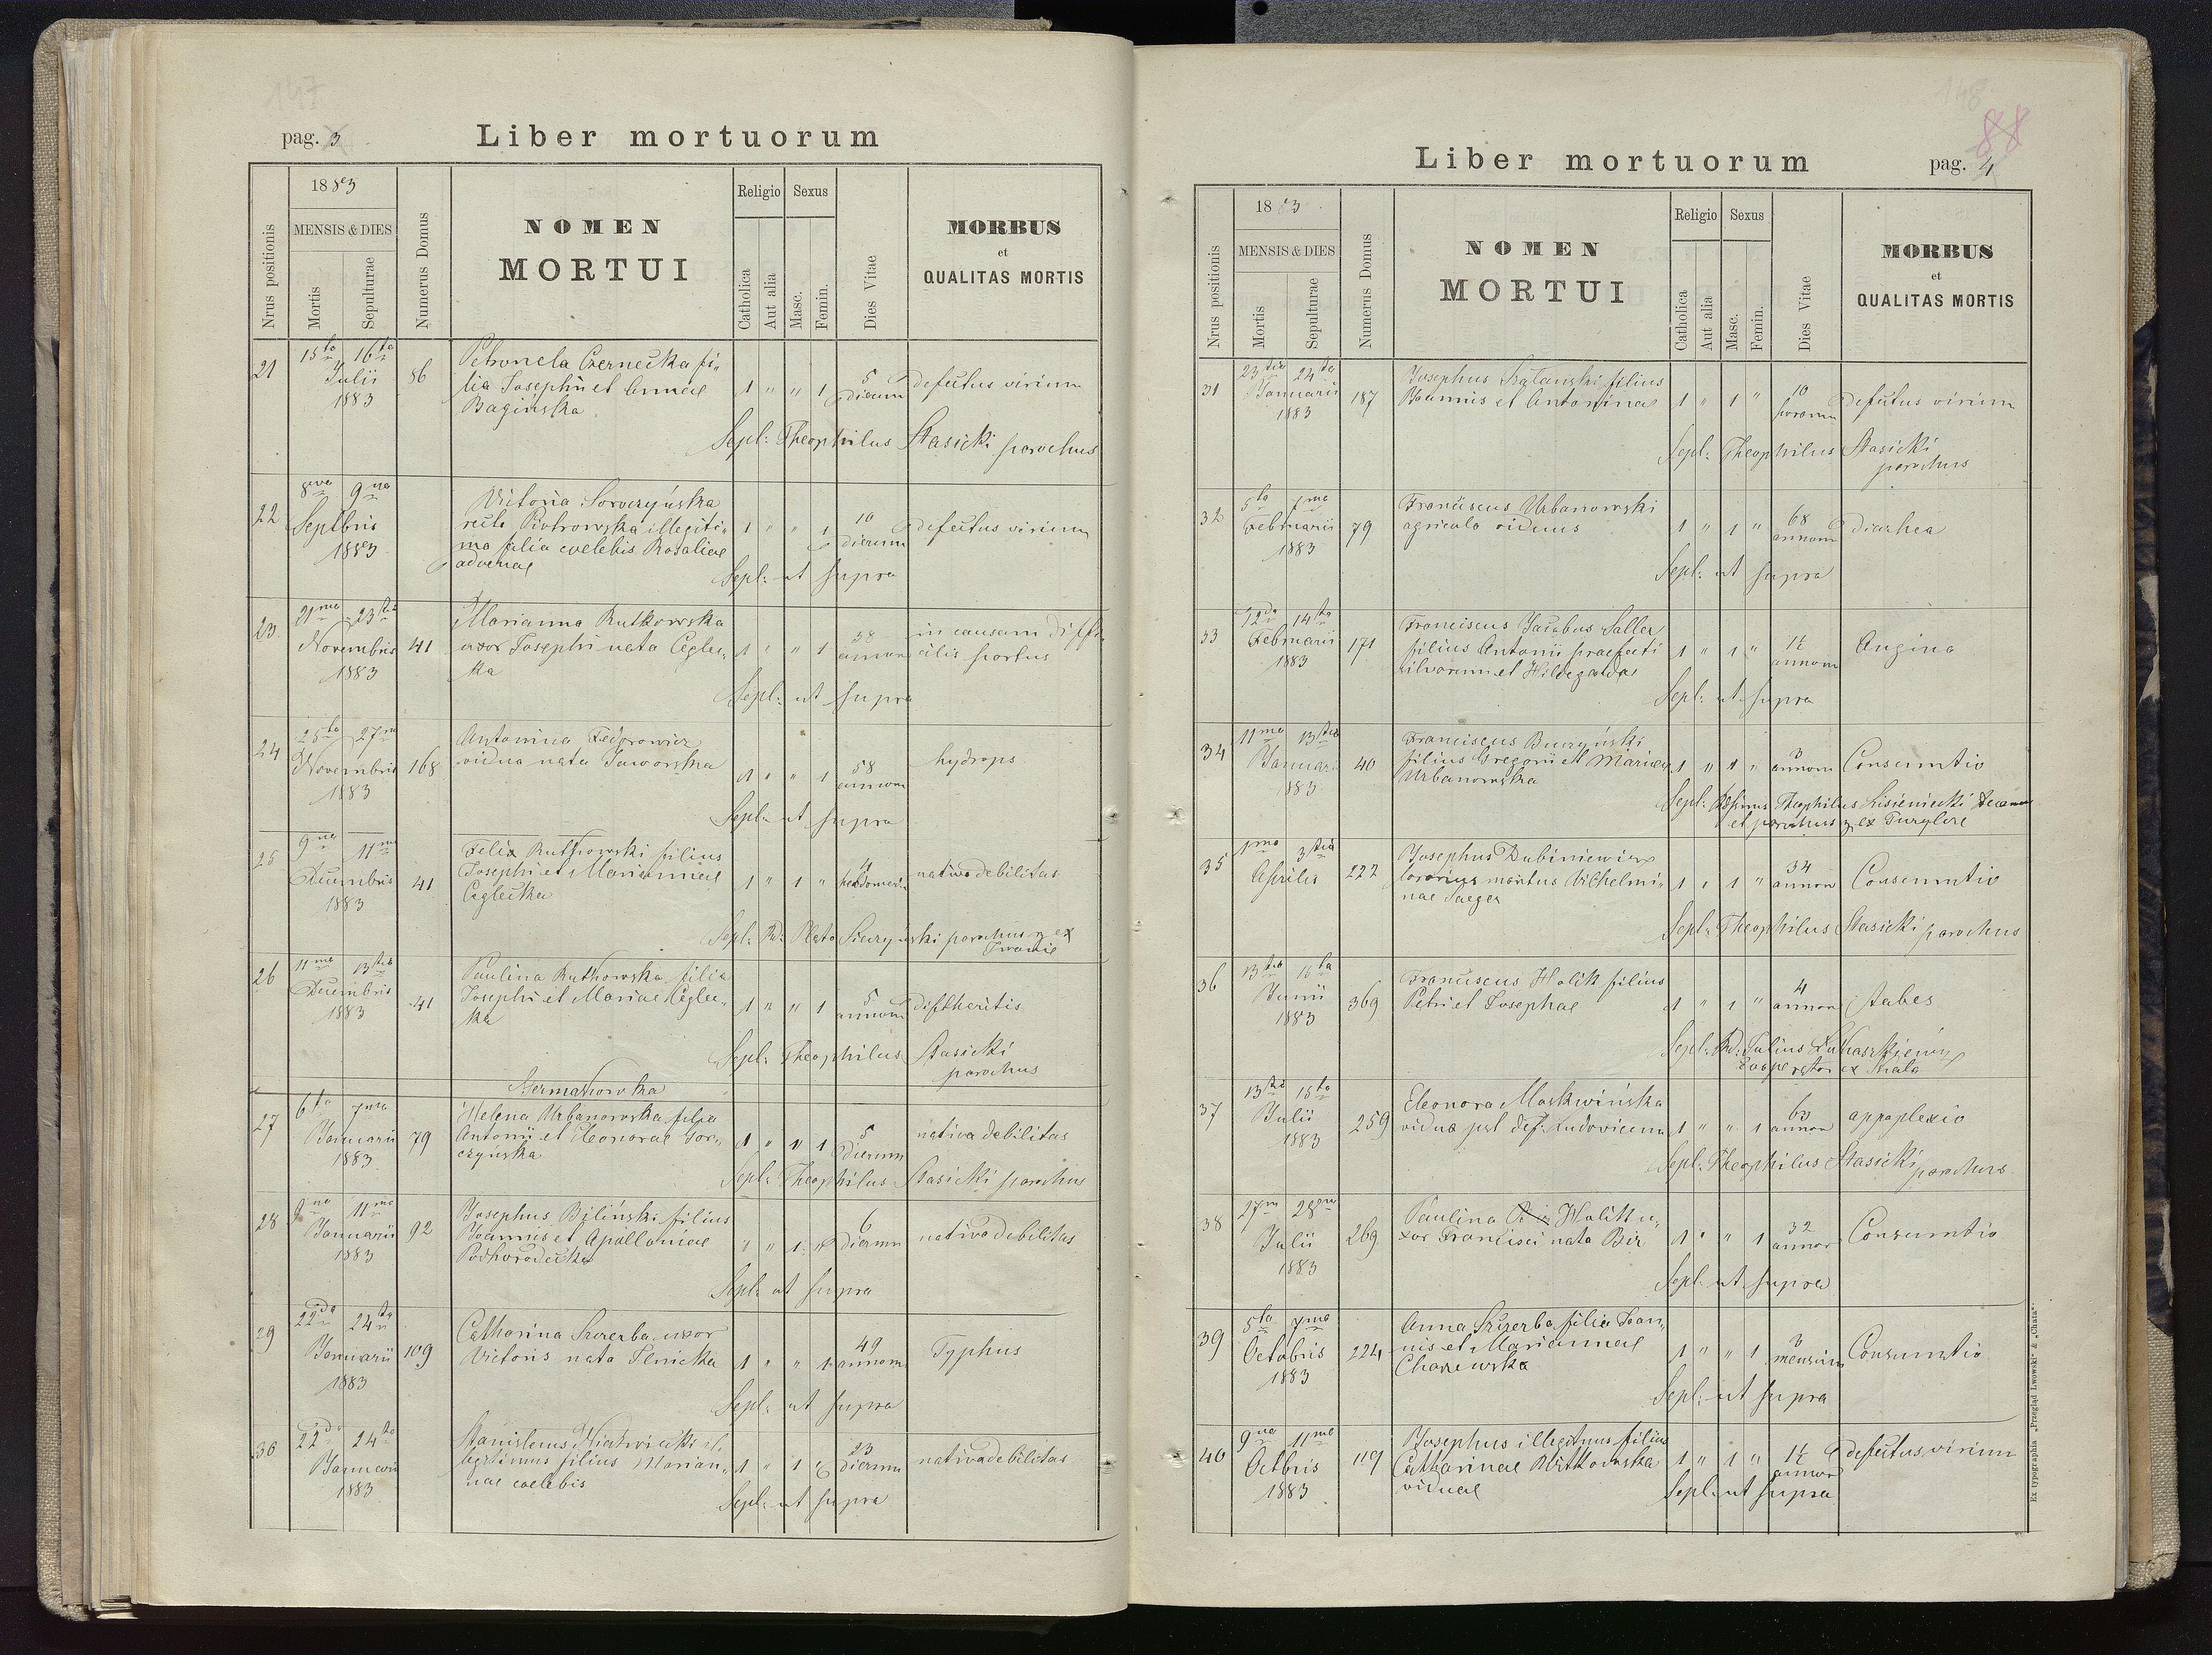 147
pag. 3
Liber mortuorum
1883
MENSIS & DIES
Nrus positionis
Mortis
Sepulturae
Numerus Domus
NOMEN
MORTUI
Religio
Sexus
Catholica
Aut alia
Masc.
Femin.
Dies Vitae
MORBUS
et
QUALITAS MORTIS
21 15ta 16ta Julii 1883 86
Petronela Czernecka fi-
lia Josephi et Annae
Bagińska
1 " " 1 5 dierum defectus virium
Sepl: Theophilus Stasicki parochus
22 8va 9na Septbris 1883
Victoria Soroczyńska
recte Piotrowska illegiti-
ma filia coelebis Rosaliae
advenae
1 " " 1 10 dierum defectus virium
Sepl: ut supra
23 21ma 23tia Novembris 1883 41
Marianna Rutkowska
uxor Josephi nata Ceglec-
ka
1 " " 1 38 annor in causam diffi-
cilis partus
Sepl: ut supra
24 25ta 27ma Novembris 1883 168
Antonina Fedorowicz
vidua nata Jaworska
1 " " 1 58 annorum hydrops
Sepl: ut supra
25 9na 11ma Decembris 1883 41
Felix Rutkowski filius
Josephi et Mariannae
Ceglecka
1 " 1 " 4 nativa debilitas
Sepl: Rd: Plato parochus g. ex
26 11ma 13tia Decembris 1883 41
Paulina Rutkowska filia
Josephi et Mariae Ceglec-
ka
1 " " 1 5 annorum diftheritis
Sepl: Theophilus Stasicki
parochus
Germakowka
27 6ta 7ma Januarii 1883 79
Helena Urbanowska filia
Antonii et Eleonorae Sor-
czyńska
1 " " 1 5 dierum nativa debilitas
Sepl: Theophilus Stasicki parochus
28 9na 11ma Januarii 1883 92
Josephus Biliński filius
Joannis et Apolloniae
Podhorodecka
" " 1 " 6 dierum nativa debilitas
Sepl: ut supra
29 22da 24ta Januarii 1883 109
Catharina Szczerba uxor
Victoris nata Ilnicka
1 " " 1 49 annorum Typhus
Sepl: ut supra
30 22da 24ta Januarii 1883
Stanislaus il-
legitimus filius Marian-
nae coelebis
1 " 1 " 23 dierum nativa debilitas
Sepl: ut supra
148
88
Liber mortuorum
pag. 4
1883
MENSIS & DIES
Nrus positionis
Mortis
Sepulturae
Numerus Domus
NOMEN
MORTUI
Religio
Sexus
Catholica
Aut alia
Masc.
Femin.
Dies Vitae
MORBUS
et
QUALITAS MORTIS
31 23tia 24ta Januarii 1883 187
Josephus filius
Joannis et Antoninae
1 " 1 " 10 horarum defectus virium
Sepl: Theophilus Stasicki
parochus
32 5ta 7ma Februarii 1883 79
Franciscus Urbanowski
agricola viduus
1 " 1 " 68 annorum Diarhea
Sepl: ut supra
33 12da 14ta Februarii 1883 171
Franciscus Jacobus Saller
filius Antonii praefecti
silvarum et Hildegardae
1 " 1 " 1½ annorum Angina
Sepl: ut supra
34 11ma 13tia Januar. 1883 40
Franciscus Buczyński
filius Gregorii et Mariae
Urbanowska
1 " 1 " 3 annorum Consumtio
Sepl: Theophilus Lisieniecki decanus
et parochus g. ex Turylcze
35 1ma 3tia Aprilis 222
Josephus Dubiniewicz
maritus Vilhelmi-
nae Jaeger
1 " 1 " 34 annor Consumtio
Sepl: Theophilus Stasicki parochus
36 13tia 16ta Junii 1883 369
Franciscus Holik filius
Petri et Josephae
1 " 1 " 4 annor tabes
Sepl: Rd: Julius Łukaszkiewicz
Cooperator ex Skala
37 13tia 15ta Julii 1883 259
Eleonora Moskwińska
vidua pst def: Ludovicum
1 " " 1 60 annor appoplexio
Sepl: Theophilus Stasicki parochus
38 27ma 28va Julii 1883 269
Paulina Holik u-
xor Francisci nata Bir
1 " " 1 32 annor Consumtio
Sepl: ut supra
39 5ta 7ma Octobris 1883 224
Anna Szczerba filia Joan-
nis et Mariannae
1 " " 1 3 mensium Consumtio
Sepl: ut supra
40 9na 11ma Octbris 1883 119
Josephus illegitimus filius
Catharinae
viduae
1 " 1 " 1½ annor defectus virium
Sepl: ut supra
Ex typographia „Przegląd Lwowski" & „Chata".